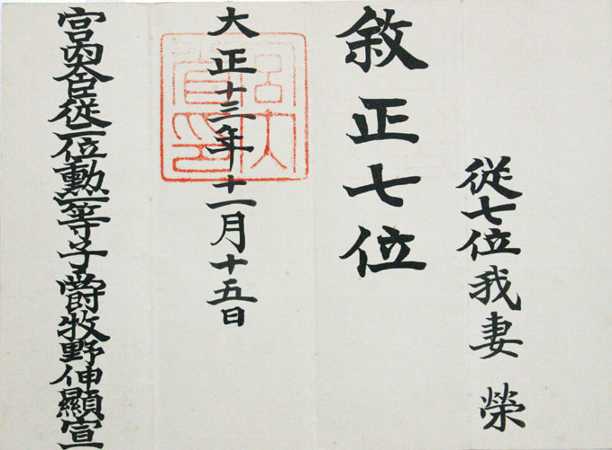 從七位我妻榮
敘正七位
大正十三年十一月十五日
宮內大臣從二位勳一等子爵牧野伸顯宣